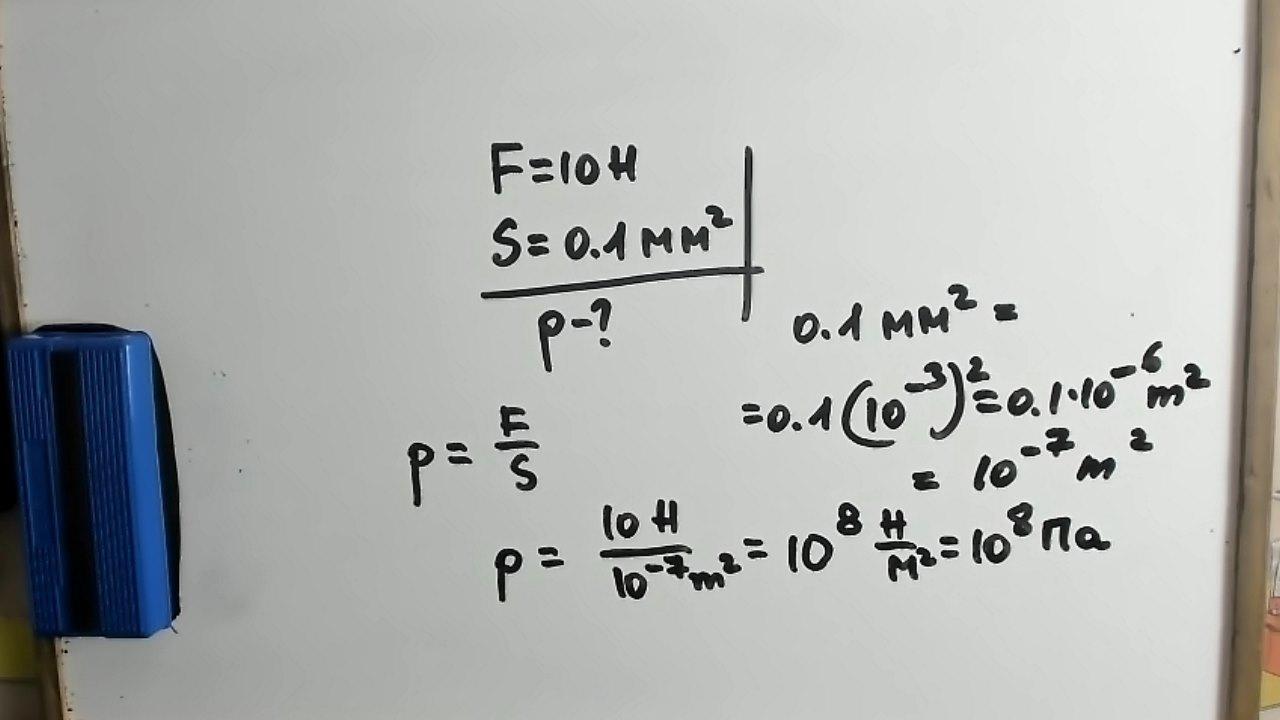 F=10Н
S=0.1мм²
p-?
0.1 мм² =
=0.1(10⁻³)²=0.1·10⁻⁶m²
= 10⁻⁷m²
p = F/S
p = 10 Н/10⁻⁷m² = 10⁸ Н/м² = 10⁸ Па